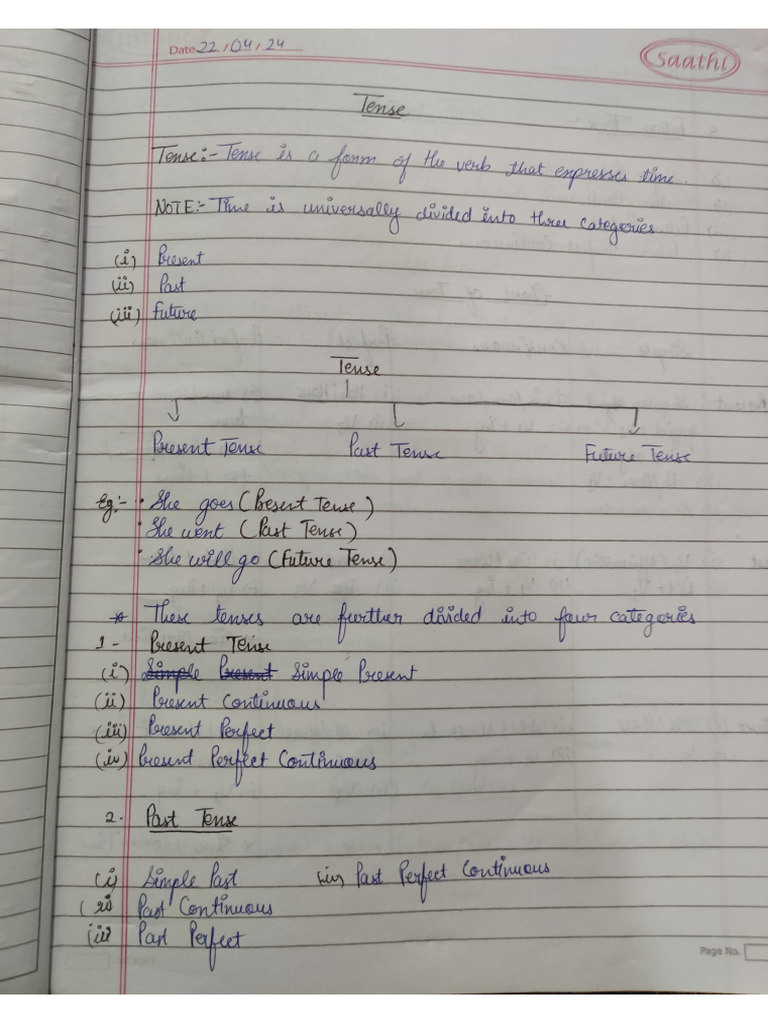 Date 22/04/24
Saathi
Tense
Tense:- Tense is a form of the verb that expresses time.
NOTE:- Time is universally divided into three categories
(i) Present
(ii) Past
(iii) Future
Tense
Present Tense Past Tense Future Tense
Eg:- • She goes (Present Tense)
• She went (Past Tense)
• She will go (Future Tense)
* These tenses are further divided into four categories
1- Present Tense
(i) Simple Present Simple Present
(ii) Present Continuous
(iii) Present Perfect
(iv) Present Perfect Continuous
2. Past Tense
(i) Simple Past (iv) Past Perfect Continuous
(ii) Past Continuous
(iii) Past Perfect
Page No.